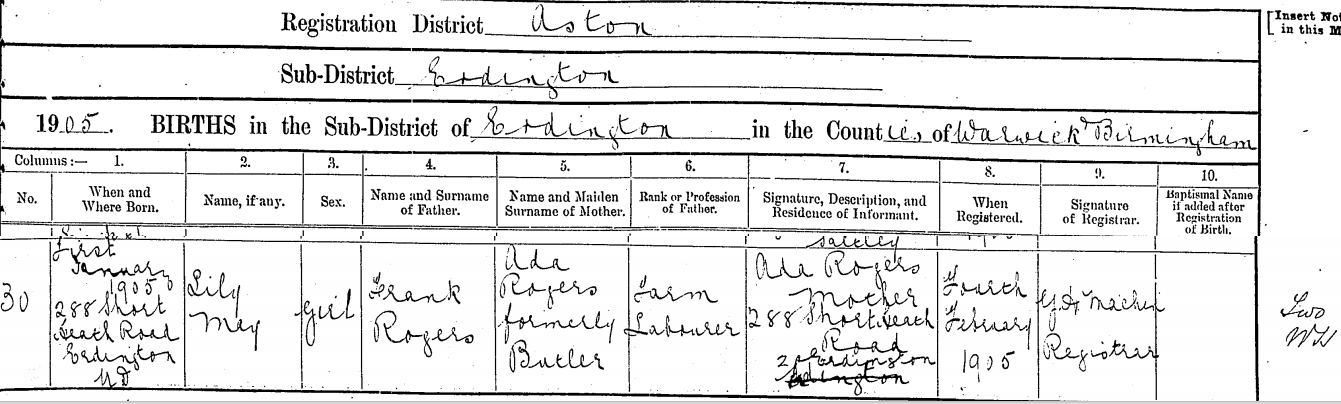 Registration District Aston
[Insert No
in this M
Sub-District Erdington
1905. BIRTHS in the Sub-District of Erdington in the Counties of Warwick & Birmingham
Columns:— 1. 2. 3. 4. 5. 6. 7. 8. 9. 10.
No.
When and
Where Born.
Name, if any.
Sex.
Name and Surname
of Father.
Name and Maiden
Surname of Mother.
Rank or Profession
of Father.
Signature, Description, and
Residence of Informant.
When
Registered.
Signature
of Registrar.
Baptismal Name
if added after
Registration
of Birth.
Saltley
30
First
January
1905
288 Short
Heath Road
Erdington
UD
Lily
May
Girl
Frank
Rogers
Ada
Rogers
formerly
Butler
Farm
Labourer
Ada Rogers
Mother
288 Short Heath
Road
Erdington
Fourth
February
1905
Machin
Registrar
Two